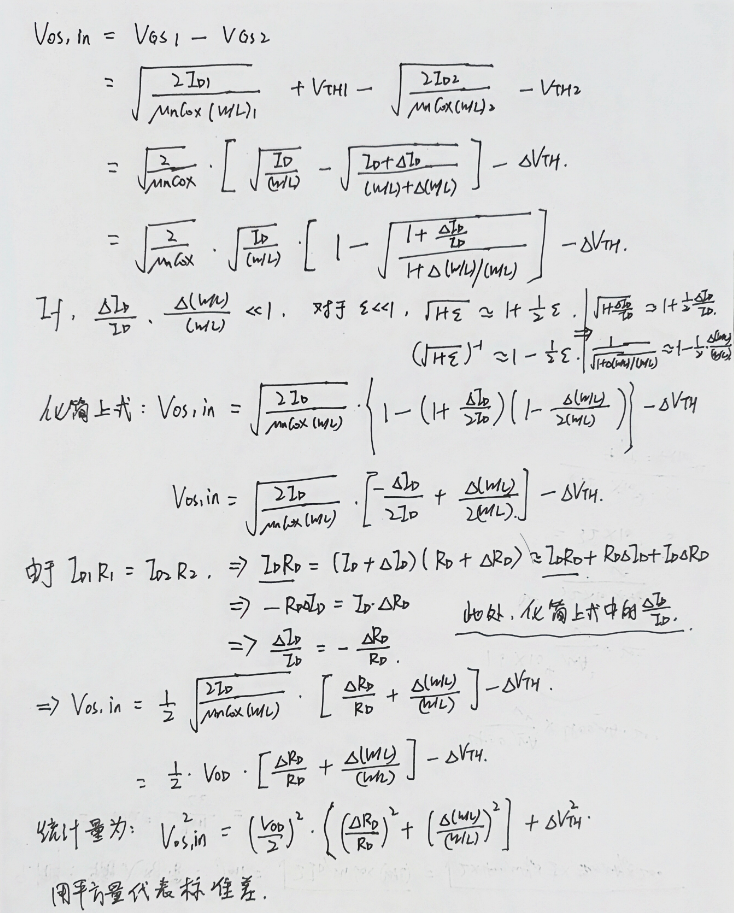 Vos,in = VGS1 − VGS2
= √(2ID1 / μnCox(W/L)1) + VTH1 − √(2ID2 / μnCox(W/L)2) − VTH2
= √(2 / μnCox) · [ √(ID / (W/L)) − √((ID+ΔID) / ((W/L)+Δ(W/L))) ] − ΔVTH.
= √(2 / μnCox) · √(ID / (W/L)) · [ 1 − √((1+ ΔID/ID) / (1+Δ(W/L)/(W/L))) ] − ΔVTH.
If, ΔID/ID . Δ(W/L)/(W/L) ≪1, 对于 ε≪1, √(1+ε) ≈ 1+ ½ε. | √(1+ΔID/ID) ≈ 1+½ ΔID/ID.
(√(1+ε))⁻¹ ≈ 1 − ½ε. ⇒ | 1/√(1+Δ(W/L)/(W/L)) ≈ 1−½·Δ(W/L)/(W/L)
化简上式: Vos,in = √(2ID / μnCox(W/L)) · { 1 − (1+ ΔID/2ID)(1− Δ(W/L)/2(W/L)) } − ΔVTH
Vos,in = √(2ID / μnCox(W/L)) · [ −ΔID/2ID + Δ(W/L)/2(W/L). ] − ΔVTH.
由于 ID1R1 = ID2R2. ⇒ IDRD = (ID+ΔID)(RD+ΔRD) ≈ IDRD + RDΔID + IDΔRD
⇒ −RDΔID = ID·ΔRD
此处, 化简上式中的 ΔID/ID.
⇒ ΔID/ID = − ΔRD/RD.
⇒ Vos,in = ½ √(2ID / μnCox(W/L)) · [ ΔRD/RD + Δ(W/L)/(W/L) ] − ΔVTH.
= ½ · VOD · [ ΔRD/RD + Δ(W/L)/(W/L) ] − ΔVTH.
统计量为: V²os,in = (VOD/2)² · { (ΔRD/RD)² + (Δ(W/L)/(W/L))² ] + ΔV²TH.
用平方量代表标准差.